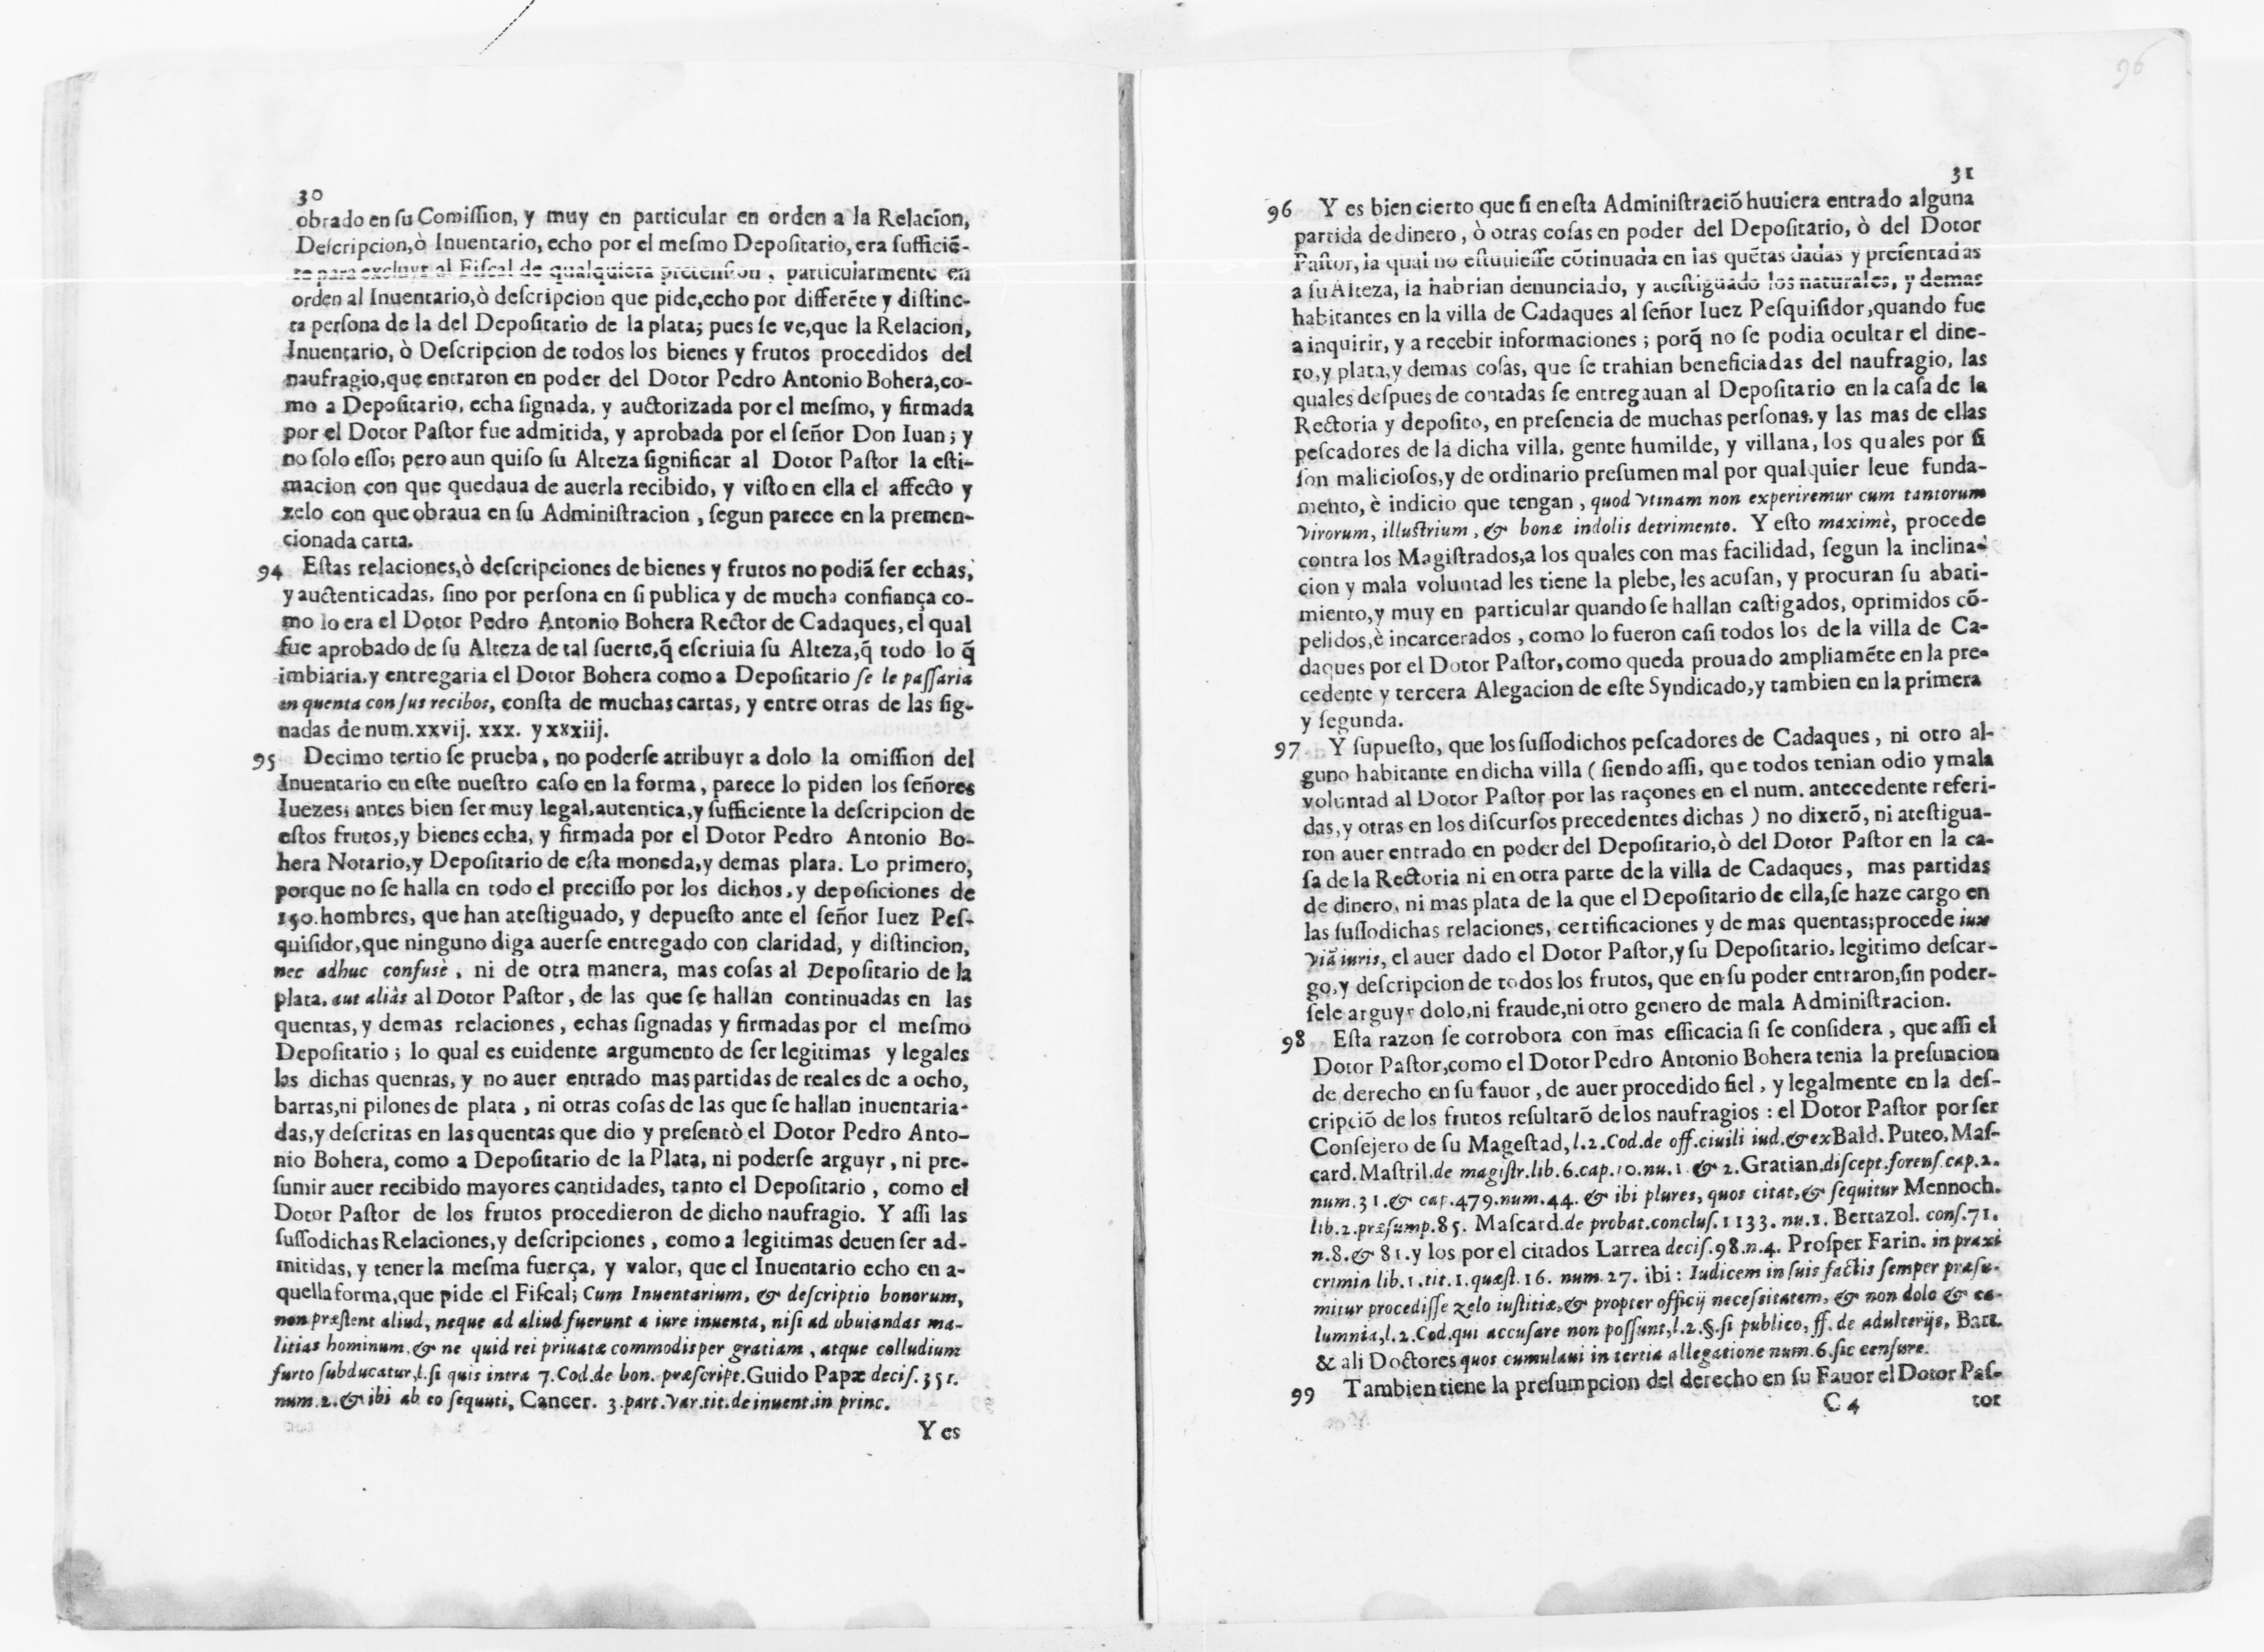 30
obrado en ſu Comiſſion, y muy en particular en orden a la Relacion,
Deſcripcion, ò Inuentario, echo por el meſmo Depoſitario, era ſufficiẽ-
te para excluyr al Fiſcal de qualquiera pretenſion, particularmente en
orden al Inuentario, ò deſcripcion que pide, echo por differẽte y diſtinc-
ta perſona de la del Depoſitario de la plata; pues ſe ve, que la Relacion,
Inuentario, ò Deſcripcion de todos los bienes y frutos procedidos del
naufragio, que entraron en poder del Dotor Pedro Antonio Bohera, co-
mo a Depoſitario, echa ſignada, y auctorizada por el meſmo, y firmada
por el Dotor Paſtor fue admitida, y aprobada por el ſeñor Don Iuan; y
no ſolo eſſo; pero aun quiſo ſu Alteza ſignificar al Dotor Paſtor la eſti-
macion con que quedaua de auerla recibido, y viſto en ella el affecto y
zelo con que obraua en ſu Adminiſtracion, ſegun parece en la premen-
cionada carta.
94 Eſtas relaciones, ò deſcripciones de bienes y frutos no podiã ſer echas,
y auctenticadas, ſino por perſona en ſi publica y de mucha confiança co-
mo lo era el Dotor Pedro Antonio Bohera Rector de Cadaques, el qual
fue aprobado de ſu Alteza de tal ſuerte, q̃ eſcriuia ſu Alteza, q̃ todo lo q̃
imbiaria, y entregaria el Dotor Bohera como a Depoſitario ſe le paſſaria
en quenta con ſus recibos, conſta de muchas cartas, y entre otras de las ſig-
nadas de num. xxvij. xxx. y xxxiij.
95 Decimo tertio ſe prueba, no poderſe atribuyr a dolo la omiſſion del
Inuentario en eſte nueſtro caſo en la forma, parece lo piden los ſeñores
Iuezes; antes bien ſer muy legal, autentica, y ſufficiente la deſcripcion de
eſtos frutos, y bienes echa, y firmada por el Dotor Pedro Antonio Bo-
hera Notario, y Depoſitario de eſta moneda, y demas plata. Lo primero,
porque no ſe halla en todo el preciſſo por los dichos, y depoſiciones de
150. hombres, que han ateſtiguado, y depueſto ante el ſeñor Iuez Peſ-
quiſidor, que ninguno diga auerſe entregado con claridad, y diſtincion,
nec adhuc confusè, ni de otra manera, mas coſas al Depoſitario de la
plata, aut aliàs al Dotor Paſtor, de las que ſe hallan continuadas en las
quentas, y demas relaciones, echas ſignadas y firmadas por el meſmo
Depoſitario; lo qual es euidente argumento de ſer legitimas y legales
las dichas quentas, y no auer entrado mas partidas de reales de a ocho,
barras, ni pilones de plata, ni otras coſas de las que ſe hallan inuentaria-
das, y deſcritas en las quentas que dio y preſentò el Dotor Pedro Anto-
nio Bohera, como a Depoſitario de la Plata, ni poderſe arguyr, ni pre-
ſumir auer recibido mayores cantidades, tanto el Depoſitario, como el
Dotor Paſtor de los frutos procedieron de dicho naufragio. Y aſſi las
ſuſſodichas Relaciones, y deſcripciones, como a legitimas deuen ſer ad-
mitidas, y tener la meſma fuerça, y valor, que el Inuentario echo en a-
quella forma, que pide el Fiſcal; Cum Inuentarium, & deſcriptio bonorum,
non præſtent aliud, neque ad aliud fuerunt a iure inuenta, niſi ad obuiandas ma-
litias hominum, & ne quid rei priuatæ commodis per gratiam, atque colludium
furto ſubducatur, l. ſi quis intra 7. Cod. de bon. præſcript. Guido Papæ deciſ. 351.
num. 2. & ibi ab eo ſequuti, Cancer. 3. part. var. tit. de inuent. in princ.
Y es
31
96 Y es bien cierto que ſi en eſta Adminiſtraciõ huuiera entrado alguna
partida de dinero, ò otras coſas en poder del Depoſitario, ò del Dotor
Paſtor, la qual no eſtuuieſſe cõtinuada en las quẽtas dadas y preſentadas
a ſu Alteza, la habrian denunciado, y ateſtiguado los naturales, y demas
habitantes en la villa de Cadaques al ſeñor Iuez Peſquiſidor, quando fue
a inquirir, y a recebir informaciones; porq̃ no ſe podia ocultar el dine-
ro, y plata, y demas coſas, que ſe trahian beneficiadas del naufragio, las
quales deſpues de contadas ſe entregauan al Depoſitario en la caſa de la
Rectoria y depoſito, en preſencia de muchas perſonas, y las mas de ellas
peſcadores de la dicha villa, gente humilde, y villana, los quales por ſi
ſon malicioſos, y de ordinario preſumen mal por qualquier leue funda-
mento, è indicio que tengan, quod vtinam non experiremur cum tantorum
virorum, illuſtrium, & bonæ indolis detrimento. Y eſto maximè, procede
contra los Magiſtrados, a los quales con mas facilidad, ſegun la inclina-
cion y mala voluntad les tiene la plebe, les acuſan, y procuran ſu abati-
miento, y muy en particular quando ſe hallan caſtigados, oprimidos cõ-
pelidos, è incarcerados, como lo fueron caſi todos los de la villa de Ca-
daques por el Dotor Paſtor, como queda prouado ampliamẽte en la pre-
cedente y tercera Alegacion de eſte Syndicado, y tambien en la primera
y ſegunda.
97 Y ſupueſto, que los ſuſſodichos peſcadores de Cadaques, ni otro al-
guno habitante en dicha villa (ſiendo aſſi, que todos tenian odio y mala
voluntad al Dotor Paſtor por las raçones en el num. antecedente referi-
das, y otras en los diſcurſos precedentes dichas) no dixerõ, ni ateſtigua-
ron auer entrado en poder del Depoſitario, ò del Dotor Paſtor en la ca-
ſa de la Rectoria ni en otra parte de la villa de Cadaques, mas partidas
de dinero, ni mas plata de la que el Depoſitario de ella, ſe haze cargo en
las ſuſſodichas relaciones, certificaciones y de mas quentas; procede iux
viã iuris, el auer dado el Dotor Paſtor, y ſu Depoſitario, legitimo deſcar-
go, y deſcripcion de todos los frutos, que en ſu poder entraron, ſin poder-
ſele arguyr dolo, ni fraude, ni otro genero de mala Adminiſtracion.
98 Eſta razon ſe corrobora con mas efficacia ſi ſe conſidera, que aſſi el
Dotor Paſtor, como el Dotor Pedro Antonio Bohera tenia la preſuncion
de derecho en ſu fauor, de auer procedido fiel, y legalmente en la deſ-
cripciõ de los frutos reſultarõ de los naufragios: el Dotor Paſtor por ſer
Conſejero de ſu Mageſtad, l. 2. Cod. de off. ciuili iud. & ex Bald. Puteo, Maſ-
card. Maſtril. de magiſtr. lib. 6. cap. 10. nu. 1 & 2. Gratian, diſcept. forenſ. cap. 2.
num. 31. & cap. 479. num. 44. & ibi plures, quos citat, & ſequitur Mennoch.
lib. 2. præſump. 85. Maſcard. de probat. concluſ. 1133. nu. 1. Bertazol. conſ. 71.
n. 8. & 81. y los por el citados Larrea deciſ. 98. n. 4. Proſper Farin. in praxi
crimin lib. 1. tit. 1. quæſt. 16. num. 27. ibi: Iudicem in ſuis factis ſemper præſu-
mitur procediſſe zelo iuſtitiæ, & propter officij neceſsitatem, & non dolo & ca-
lumnia, l. 2. Cod. qui accuſare non poſſunt, l. 2. §. ſi publico, ff. de adulterijs, Bart.
& ali Doctores quos cumulaui in tertia allegatione num. 6. ſic cenſure.
99 Tambien tiene la preſumpcion del derecho en ſu Fauor el Dotor Paſ-
C 4 tor
96